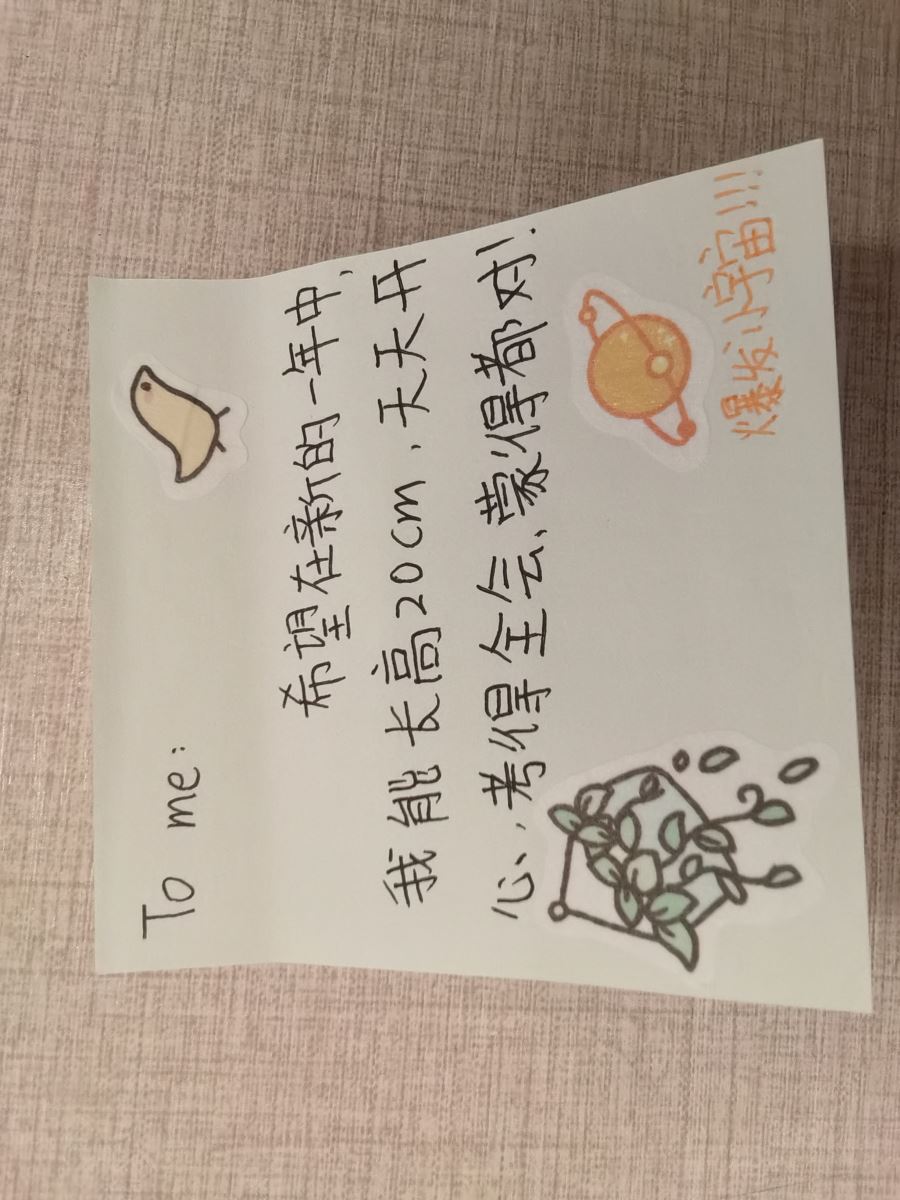 To me:
希望在新的一年中,
我能长高20cm、天天开
心、考得全会、蒙得都对!
爆发小宇宙!!!